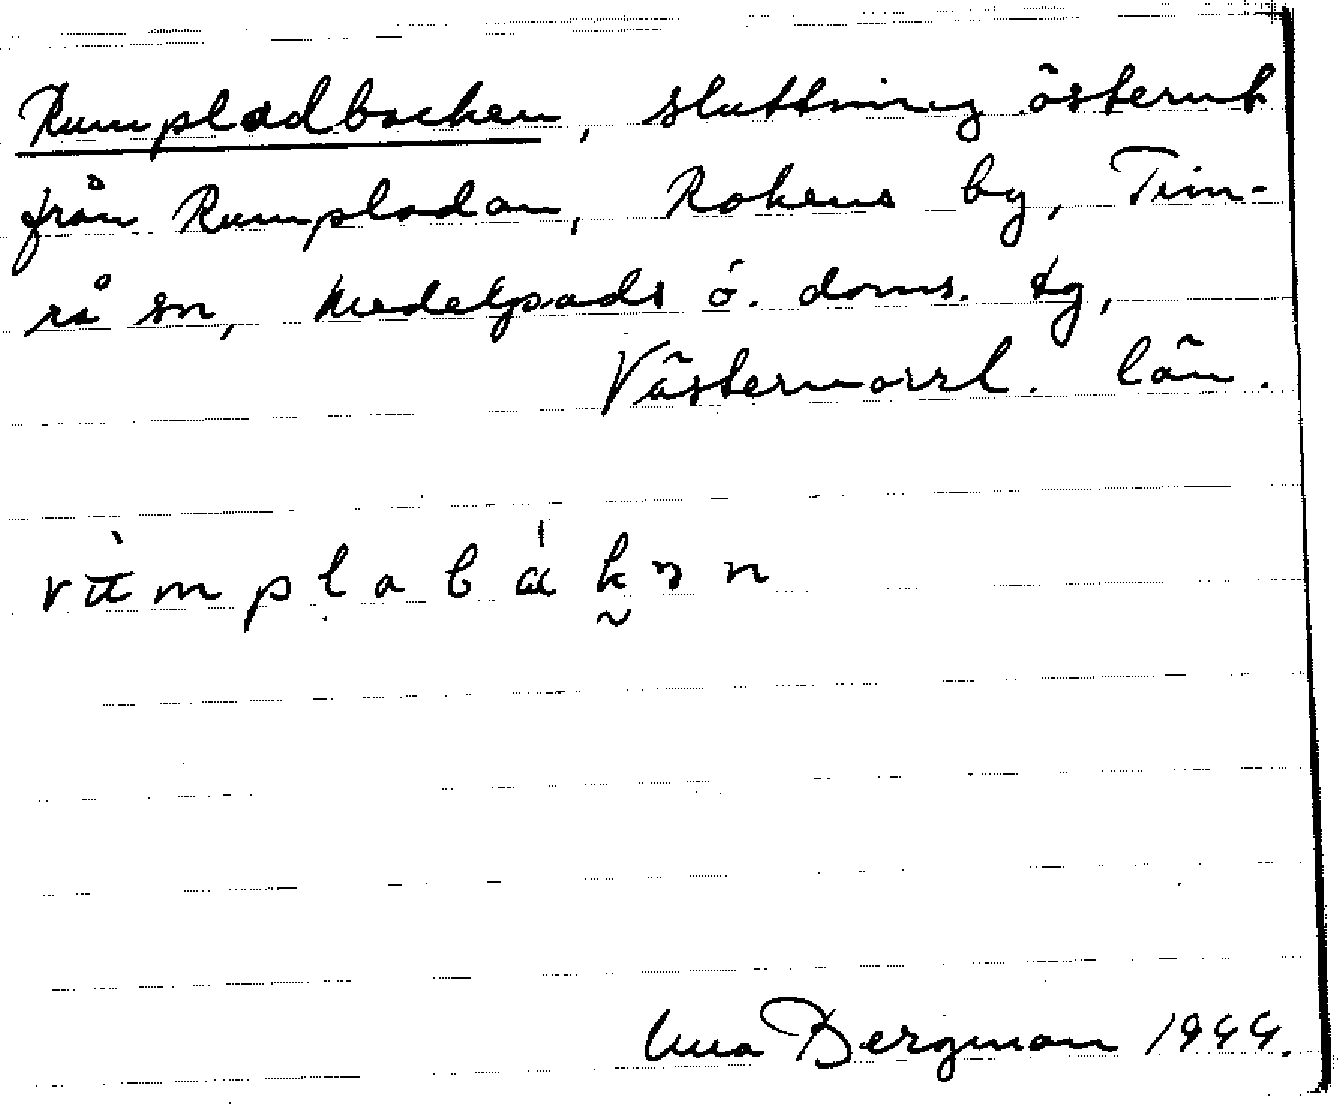 Rumpladbacken, sluttning österut
från Rumpladan, Rokens by, Tim-
rå sn, Medelpads ö. doms. tg,
Västernorrl. län.
vùmplabákən
Bergman 1944.